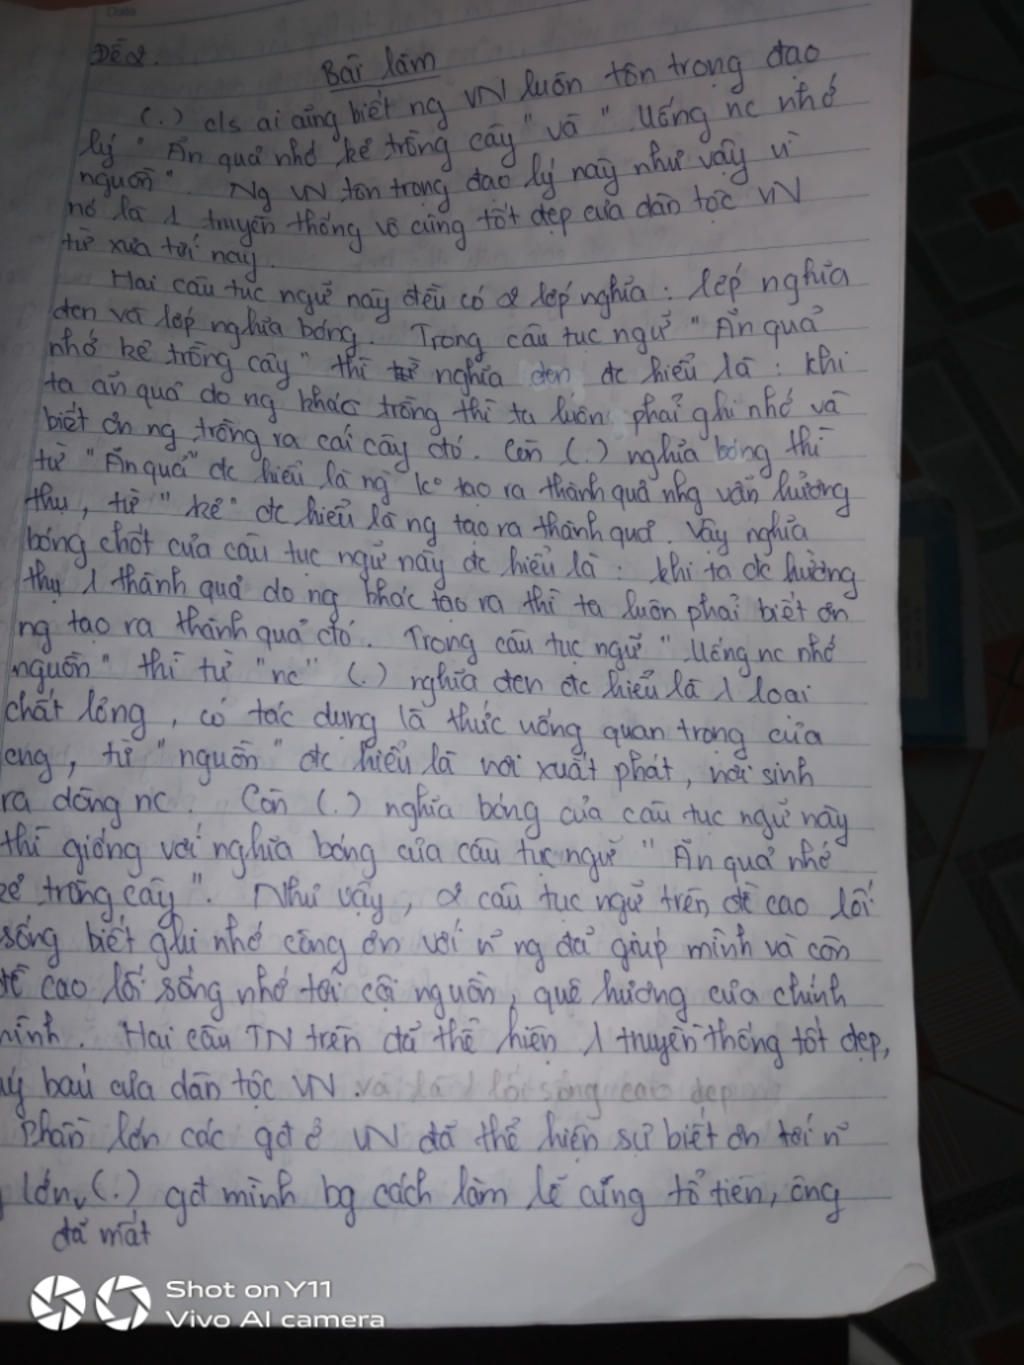 Date
Đề 2.
Bài làm
(.) c/s ai cũng biết ng VN luôn tôn trọng đạo
lý "Ăn quả nhớ kẻ trồng cây" và "Uống nc nhớ
nguồn". Ng VN tôn trọng đạo lý này như vậy vì
nó là 1 truyền thống vô cùng tốt đẹp của dân tộc VN
từ xưa tới nay.
Hai câu tục ngữ này đều có 2 lớp nghĩa: lớp nghĩa
đen và lớp nghĩa bóng. Trong câu tục ngữ "Ăn quả
nhớ kẻ trồng cây" thì nghĩa đen đc hiểu là: khi
ta ăn quả do ng khác trồng thì ta luôn phải ghi nhớ và
biết ơn ng trồng ra cái cây đó. Còn (.) nghĩa bóng thì
từ "Ăn quả" đc hiểu là ng ko tạo ra thành quả nhg vẫn hưởng
thụ, từ "kẻ" đc hiểu là ng tạo ra thành quả. Vậy nghĩa
bóng chốt của câu tục ngữ này đc hiểu là: khi ta đc hưởng
thụ 1 thành quả do ng khác tạo ra thì ta luôn phải biết ơn
ng tạo ra thành quả đó. Trong câu tục ngữ "Uống nc nhớ
nguồn" thì từ "nc" (.) nghĩa đen đc hiểu là 1 loại
chất lỏng, có tác dụng là thức uống quan trọng của
cng, từ "nguồn" đc hiểu là nơi xuất phát, nơi sinh
ra dòng nc. Còn (.) nghĩa bóng của câu tục ngữ này
thì giống với nghĩa bóng của câu tục ngữ "Ăn quả nhớ
kẻ trồng cây". Như vậy, 2 câu tục ngữ trên đề cao lối
sống biết ghi nhớ công ơn với n~ ng đã giúp mình và còn
đề cao lối sống nhớ tới cội nguồn, quê hương của chính
mình. Hai câu TN trên đã thể hiện 1 truyền thống tốt đẹp,
quý báu của dân tộc VN. và là 1 lối sống cao đẹp
Phần lớn các gđ ở VN đã thể hiện sự biết ơn tới n~
lớn (.) gđ mình bg cách làm lễ cúng tổ tiên, ông
đã mất
Shot on Y11
Vivo AI camera